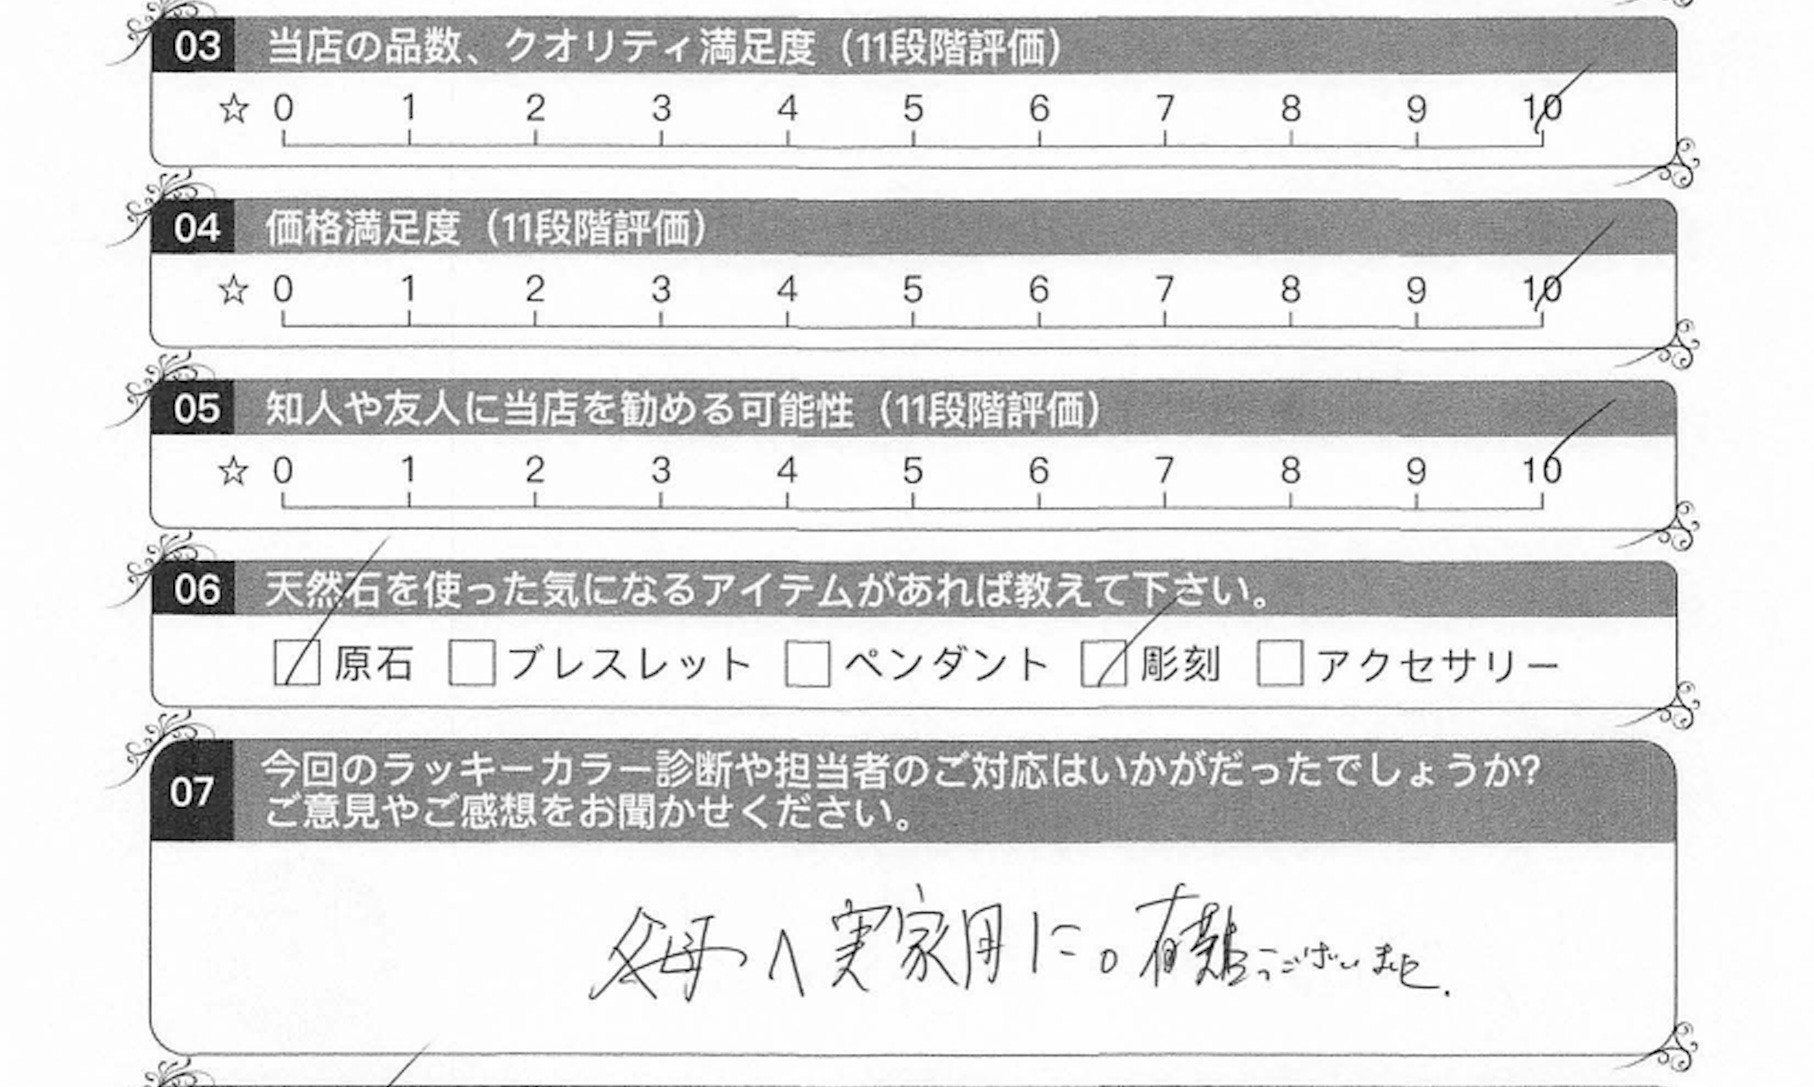 03 当店の品数、クオリティ満足度（11段階評価）
☆ 0 1 2 3 4 5 6 7 8 9 10
04 価格満足度（11段階評価）
☆ 0 1 2 3 4 5 6 7 8 9 10
05 知人や友人に当店を勧める可能性（11段階評価）
☆ 0 1 2 3 4 5 6 7 8 9 10
06 天然石を使った気になるアイテムがあれば教えて下さい。
原石 ブレスレット ペンダント 彫刻 アクセサリー
07 今回のラッキーカラー診断や担当者のご対応はいかがだったでしょうか?
ご意見やご感想をお聞かせください。
父母へ実家用に。有難うございました.